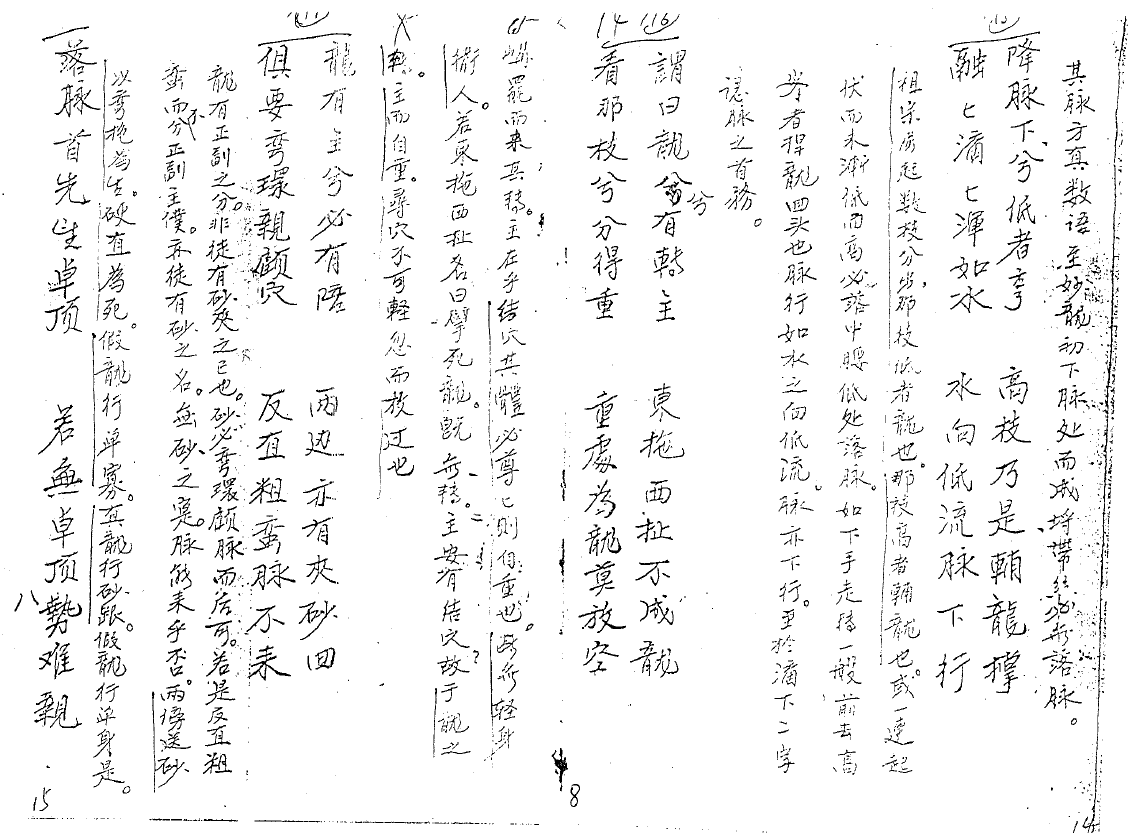 其脉方真数语至妙龍初下脉处而成
落脉。
降脉下兮低者亨 高技乃是輔龍撑
融七滴七渾如水 水向低流脉下行
祖宗 起数枝分 那枝低者龍也。那技高者輔龍也。或一連起
伏而来漸低而高必 中腰低处落脉。如下手走 一般前去高
举者捍龍回头也脉行如水之向低流。脉亦下行。至於滴下二字
認脉之首務。
16
謂曰龍 兮有転主 東拖西扯不成龍
14
看那枝兮分得重 重處為龍莫放空
罷而来真转。主在乎结穴其體必尊七則自重也。 輕身
衛人。若東拖西扯名曰 死龍。既無转。主安有结穴故于龍之
主而自重。尋穴不可軽忽而放过也
龍有主兮必有陪 两边亦有夾砂回
俱要弯環親顧穴 反直粗蛮脉不来
龍有正副之分。非徒有砂夾之已也。砂必弯環顧脉而后可。若是反直粗
蛮而不分正副主僕。亦徒有砂之名。無砂之寔。脉能来乎否。兩傍送砂
以弯拖為生。硬直為死。假龍行单寡。真龍行砂跟。假龍行单身是。
落脉首先生卓顶 若無卓顶勢难親
八
15
8
14